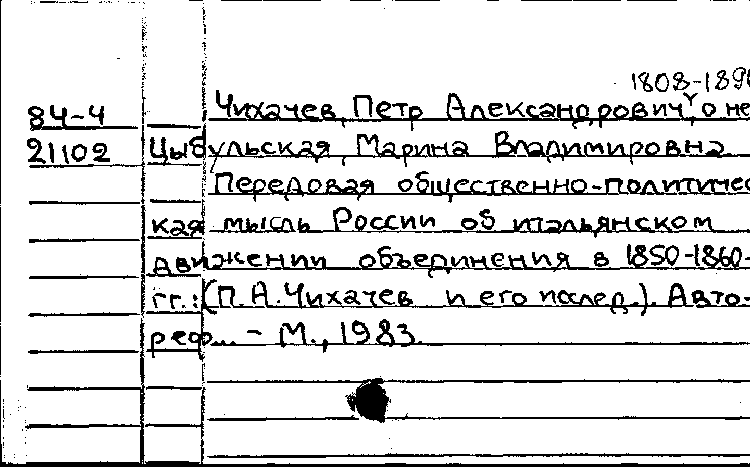 1808-1890
84-4 Чихачев, Петр Александрович, о нем
21102 Цыбульская, Марина Владимировна
Передовая общественно-политичес
кая мысль России об итальянском
движении объединения в 1850-1860-
гг.: (П.А. Чихачев и его послед.). Авто-
реф... - М., 1983.